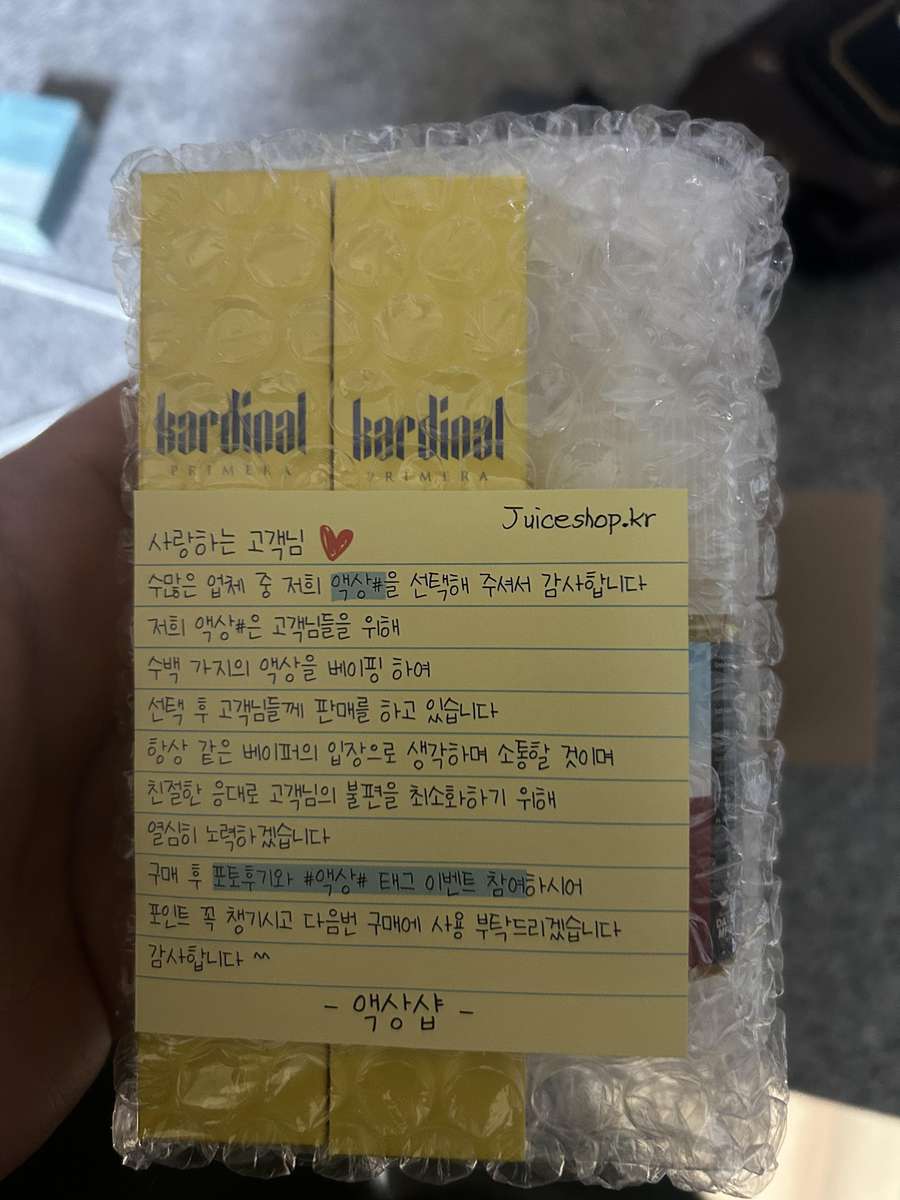 kardinal kardinal
PRIMERA PRIMERA
Juiceshop.kr
사랑하는 고객님
수많은 업체 중 저희 액상#을 선택해 주셔서 감사합니다
저희 액상#은 고객님들을 위해
수백 가지의 액상을 베이핑 하여
선택 후 고객님들께 판매를 하고 있습니다
항상 같은 베이퍼의 입장으로 생각하며 소통할 것이며
친절한 응대로 고객님의 불편을 최소화하기 위해
열심히 노력하겠습니다
구매 후 포토후기와 #액상# 태그 이벤트 참여하시어
포인트 꼭 챙기시고 다음번 구매에 사용 부탁드리겠습니다
감사합니다 ^^
- 액상샵 -